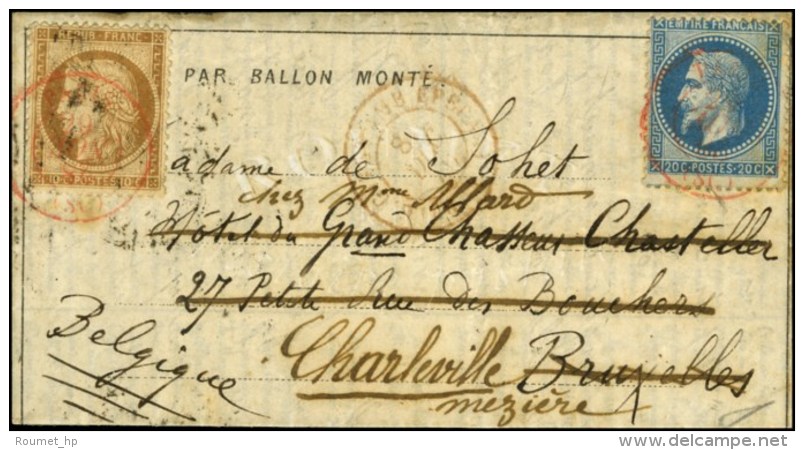 RÉPUB. FRANC.
EMPIRE FRANÇAIS
PAR BALLON MONTÉ.
10 C. POSTES 10 C.
20 C - POSTES - 20 C
adame de Sohet
chez Mme Allard
Hôtel du Grand Chasseur Chasteller
27 Petite Rue des Bouchers
Belgique
Charleville Bruxelles
mezière
Roumet_hp
www.delcampe.net